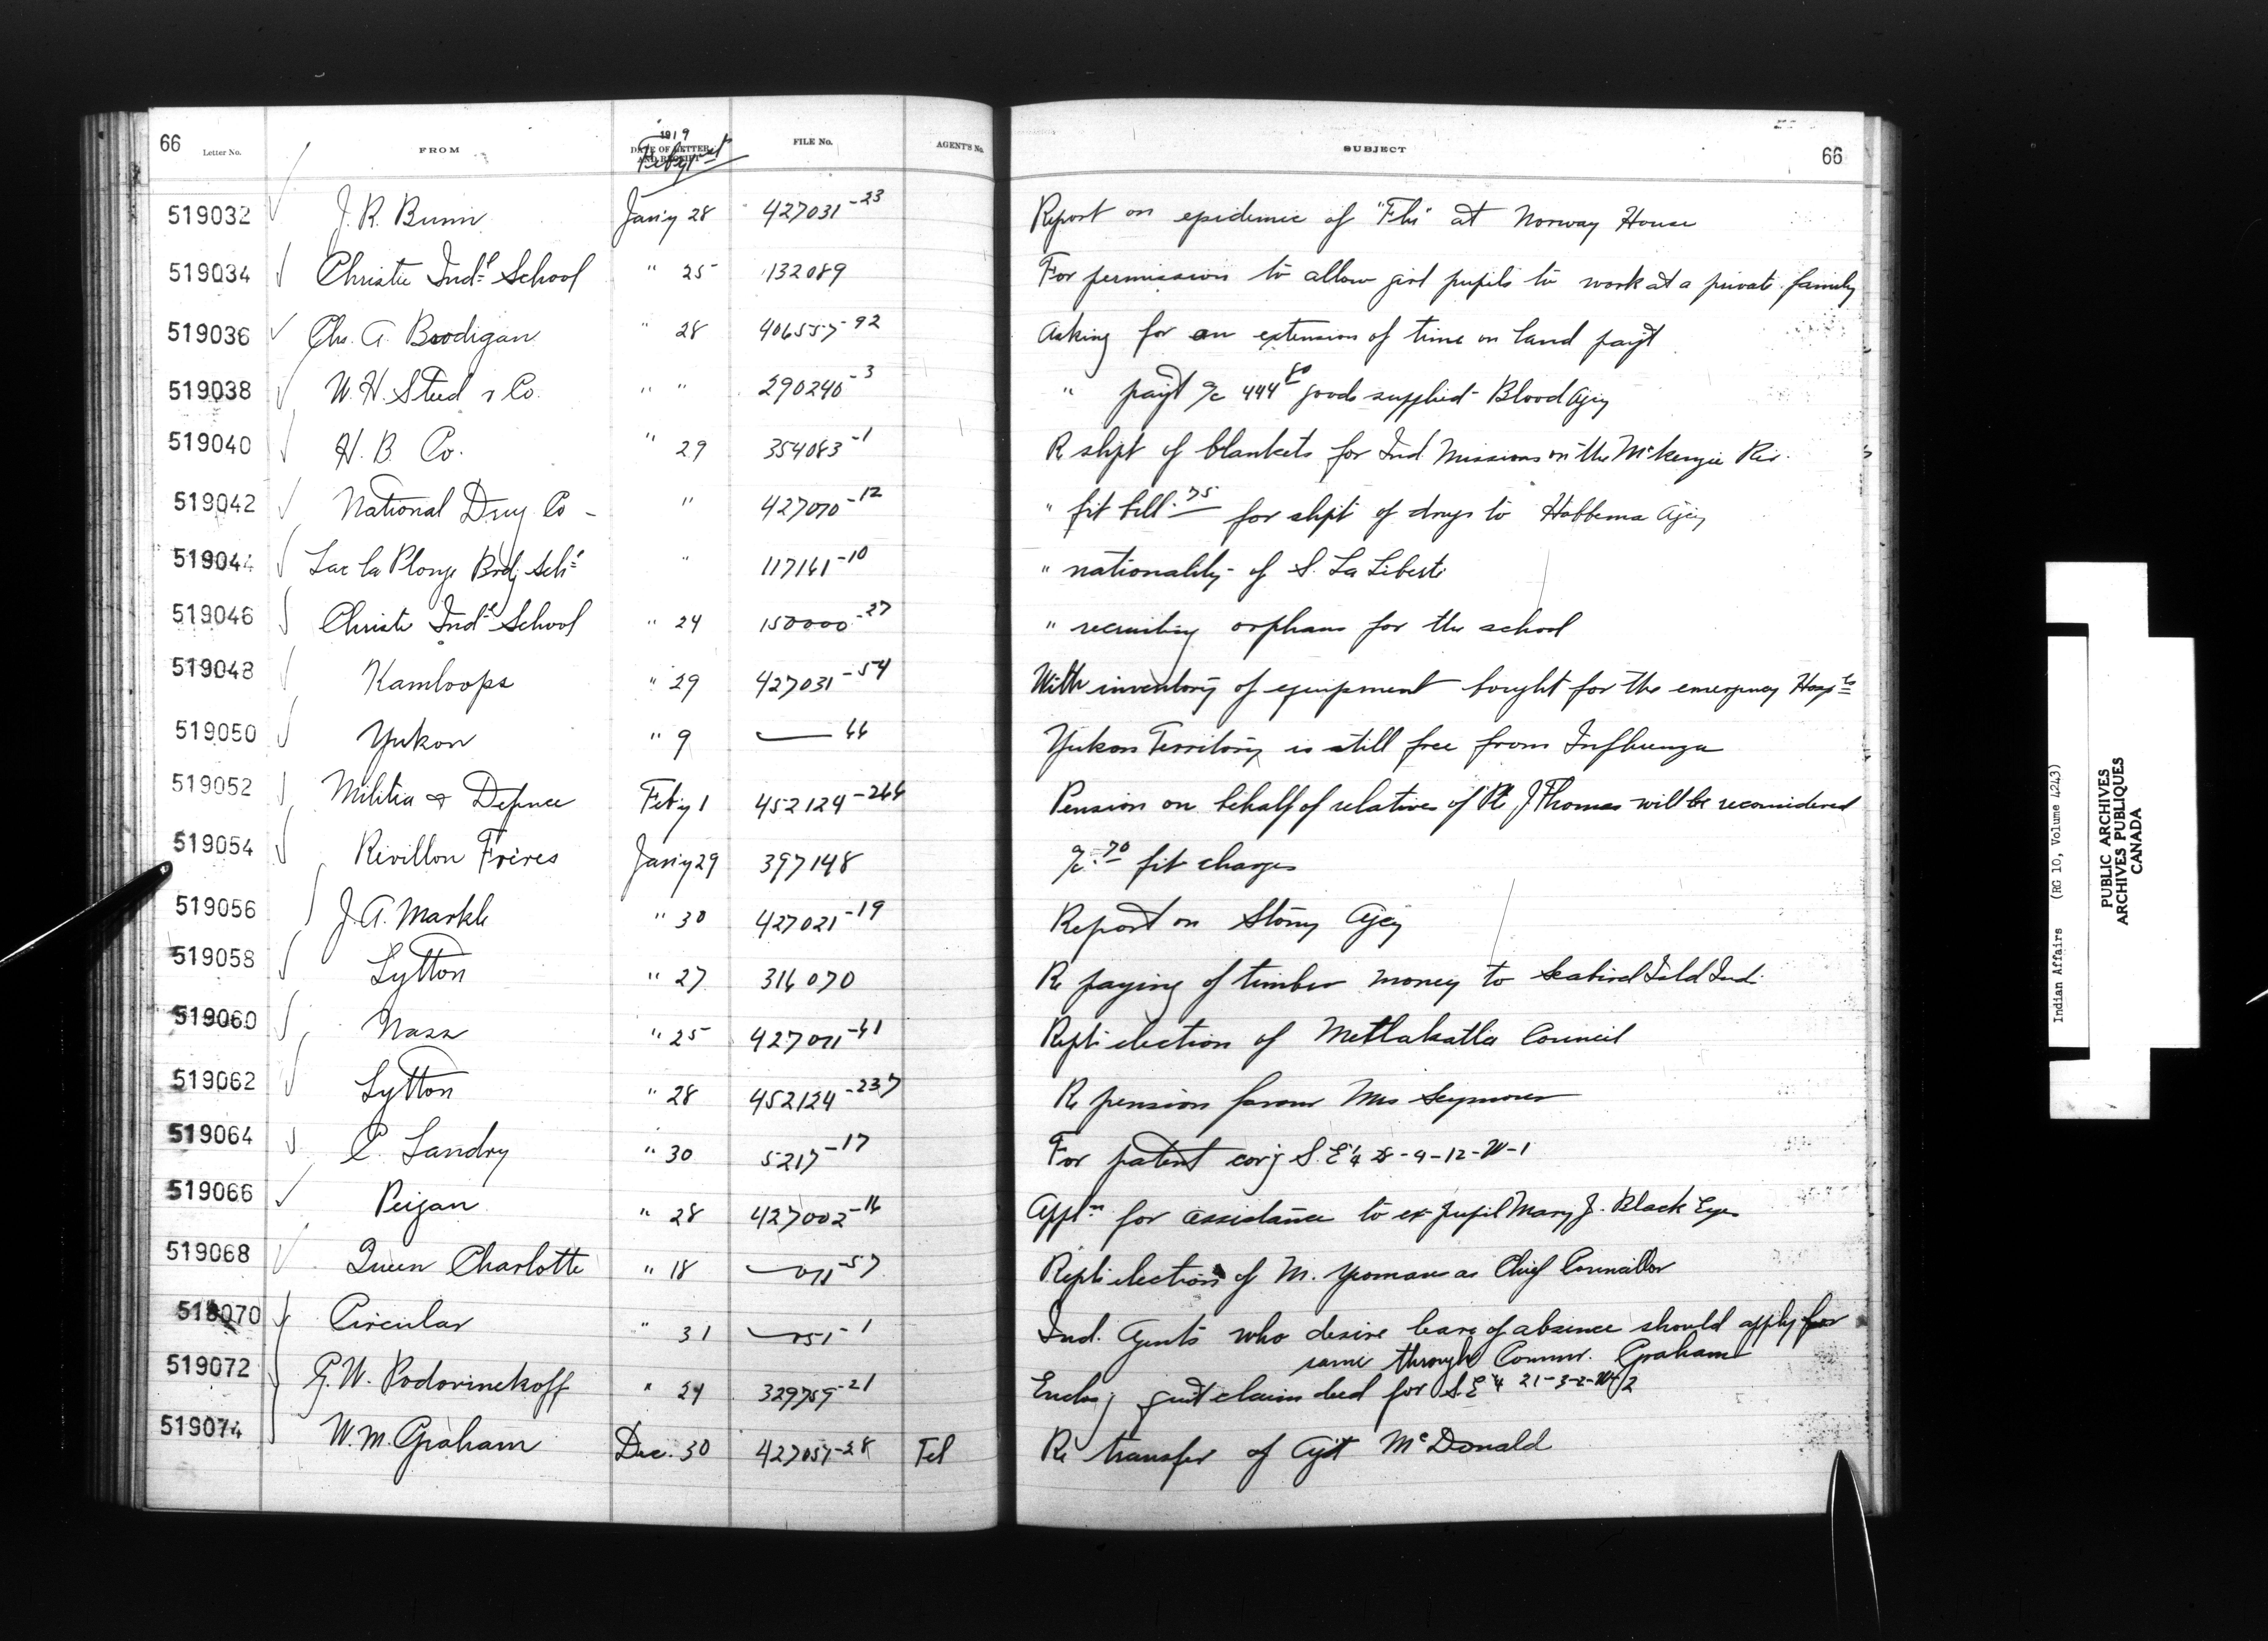 66 Letter No. FROM 1919 DATE OF LETTER AND RECEIPT Feby 1st FILE No. AGENT'S No. SUBJECT 66
519032 J. R. Bunn Jan'y 28 427031-23 Report on epidemic of "Flu" at Norway House
519034 Christie Ind'l School " 25 132089 For permission to allow girl pupils to work at a private family
519036 Chs. A. Brodigan " 28 406557-92 Asking for an extension of time on land pay't
519038 W. H. Steed & Co. " " 290240-3 " pay't a/c 444 80 goods supplied - Blood Agcy
519040 H. B. Co. " 29 354083-1 R shpt of blankets for Ind Missions on the McKenzie Riv.
519042 National Drug Co - " 427070-12 " frt bill .75 for shpt of drugs to Hobbema Agcy
519044 Lac la Plonge Brdg Sch'l " 117161-10 " nationality of S. La Liberte
519046 Christie Ind'l School " 24 150000-27 " recruiting orphans for the school
519048 Kamloops " 29 427031-54 With inventory of equipment bought for the emergency Hosp'ls
519050 Yukon " 9 —— 66 Yukon Territory is still free from Influenza
519052 Militia & Defence Feb'y 1 452124-266 Pension on behalf of relatives of Pte J Thomas will be reconsidered
519054 Revillon Frères Jan'y 29 397148 a/c .70 frt charges
519056 J. A. Markle " 30 427021-19 Report on Stony Agcy
519058 Lytton " 27 316070 R paying of timber money to Seabird Isld Ind.
519060 Nass " 25 427011-61 Rept: election of Metlakatla Council
519062 Lytton " 28 452124-237 R pension favour Mrs Seymour
519064 C. Landry " 30 5217-17 For patent cov'g S. E 1/4 28-9-12-W-1
519066 Peigan " 28 427002-16 Appl'n for assistance to ex-pupil Mary J. Black Eyes
519068 Queen Charlotte " 18 —— 011-57 Rept: election of M. Yeomans as Chief Councillor
519070 Circular " 31 —— 051-1 Ind. Agents who desire leave of absence should apply for
same through Commr. Graham
519072 G. W. Podovinekoff " 24 329759-21 Enclos'g quit claim deed for S.E 1/4 21-3-2-W/2
519074 W. M. Graham Dec. 30 427057-28 Tel Re transfer of Ag't McDonald
Indian Affairs (RG 10, Volume 4243)
PUBLIC ARCHIVES
ARCHIVES PUBLIQUES
CANADA